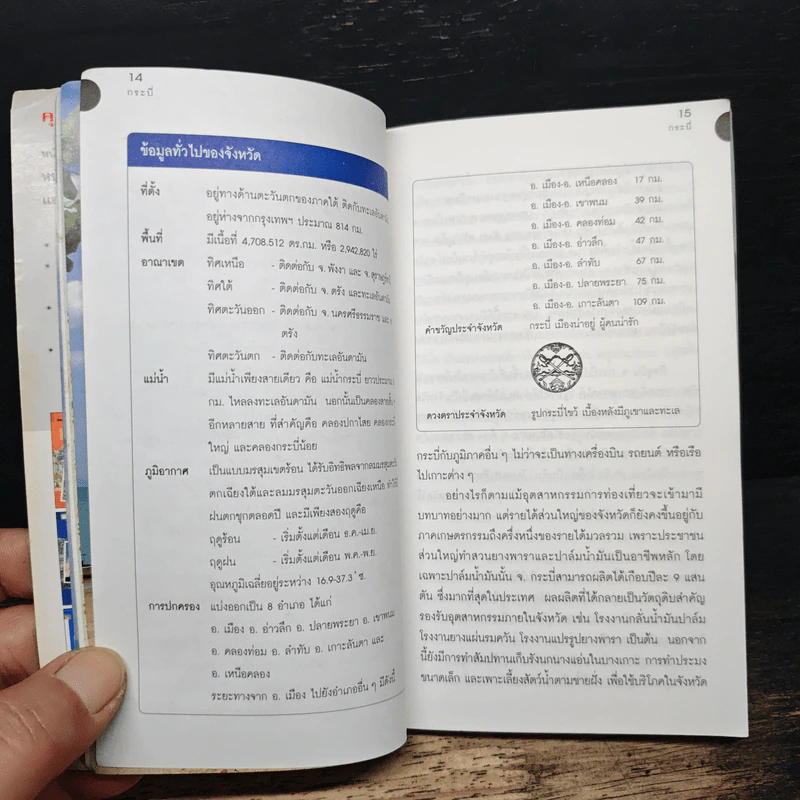 14
กระบี่
ข้อมูลทั่วไปของจังหวัด
ที่ตั้ง อยู่ทางด้านตะวันตกของภาคใต้ ติดกับทะเลอันดามัน
อยู่ห่างจากกรุงเทพฯ ประมาณ 814 กม.
พื้นที่ มีเนื้อที่ 4,708.512 ตร.กม. หรือ 2,942,820 ไร่
อาณาเขต ทิศเหนือ - ติดต่อกับ จ. พังงา และ จ. สุราษฎร์ธานี
ทิศใต้ - ติดต่อกับ จ. ตรัง และทะเลอันดามัน
ทิศตะวันออก - ติดต่อกับ จ. นครศรีธรรมราช และ จ.
ตรัง
ทิศตะวันตก - ติดต่อกับทะเลอันดามัน
แม่น้ำ มีแม่น้ำเพียงสายเดียว คือ แม่น้ำกระบี่ ยาวประมาณ
กม. ไหลลงทะเลอันดามัน นอกนั้นเป็นคลองสายสั้น
อีกหลายสาย ที่สำคัญคือ คลองปกาไสย คลองกระบี่
ใหญ่ และคลองกระบี่น้อย
ภูมิอากาศ เป็นแบบมรสุมเขตร้อน ได้รับอิทธิพลจากลมมรสุมตะวัน
ตกเฉียงใต้และลมมรสุมตะวันออกเฉียงเหนือ ทำให้มี
ฝนตกชุกตลอดปี และมีเพียงสองฤดูคือ
ฤดูร้อน - เริ่มตั้งแต่เดือน ธ.ค.-เม.ย.
ฤดูฝน - เริ่มตั้งแต่เดือน พ.ค.-พ.ย.
อุณหภูมิเฉลี่ยอยู่ระหว่าง 16.9-37.3 ํซ.
การปกครอง แบ่งออกเป็น 8 อำเภอ ได้แก่
อ. เมือง อ. อ่าวลึก อ. ปลายพระยา อ. เขาพนม
อ. คลองท่อม อ. ลำทับ อ. เกาะลันตา และ
อ. เหนือคลอง
ระยะทางจาก อ. เมือง ไปยังอำเภออื่น ๆ มีดังนี้
15
กระบี่
อ. เมือง-อ. เหนือคลอง 17 กม.
อ. เมือง-อ. เขาพนม 39 กม.
อ. เมือง-อ. คลองท่อม 42 กม.
อ. เมือง-อ. อ่าวลึก 47 กม.
อ. เมือง-อ. ลำทับ 67 กม.
อ. เมือง-อ. ปลายพระยา 75 กม.
อ. เมือง-อ. เกาะลันตา 109 กม.
คำขวัญประจำจังหวัด กระบี่ เมืองน่าอยู่ ผู้คนน่ารัก
ดวงตราประจำจังหวัด รูปกระบี่ไขว้ เบื้องหลังมีภูเขาและทะเล
กระบี่กับภูมิภาคอื่น ๆ ไม่ว่าจะเป็นทางเครื่องบิน รถยนต์ หรือเรือ
ไปเกาะต่าง ๆ
อย่างไรก็ตามแม้อุตสาหกรรมการท่องเที่ยวจะเข้ามามี
บทบาทอย่างมาก แต่รายได้ส่วนใหญ่ของจังหวัดก็ยังคงขึ้นอยู่กับ
ภาคเกษตรกรรมถึงครึ่งหนึ่งของรายได้มวลรวม เพราะประชาชน
ส่วนใหญ่ทำสวนยางพาราและปาล์มน้ำมันเป็นอาชีพหลัก โดย
เฉพาะปาล์มน้ำมันนั้น จ. กระบี่สามารถผลิตได้เกือบปีละ 9 แสน
ตัน ซึ่งมากที่สุดในประเทศ ผลผลิตที่ได้กลายเป็นวัตถุดิบสำคัญ
รองรับอุตสาหกรรมภายในจังหวัด เช่น โรงงานกลั่นน้ำมันปาล์ม
โรงงานยางแผ่นรมควัน โรงงานแปรรูปยางพารา เป็นต้น นอกจาก
นี้ยังมีการทำสัมปทานเก็บรังนกนางแอ่นในบางเกาะ การทำประมง
ขนาดเล็ก และเพาะเลี้ยงสัตว์น้ำตามชายฝั่ง เพื่อใช้บริโภคในจังหวัด